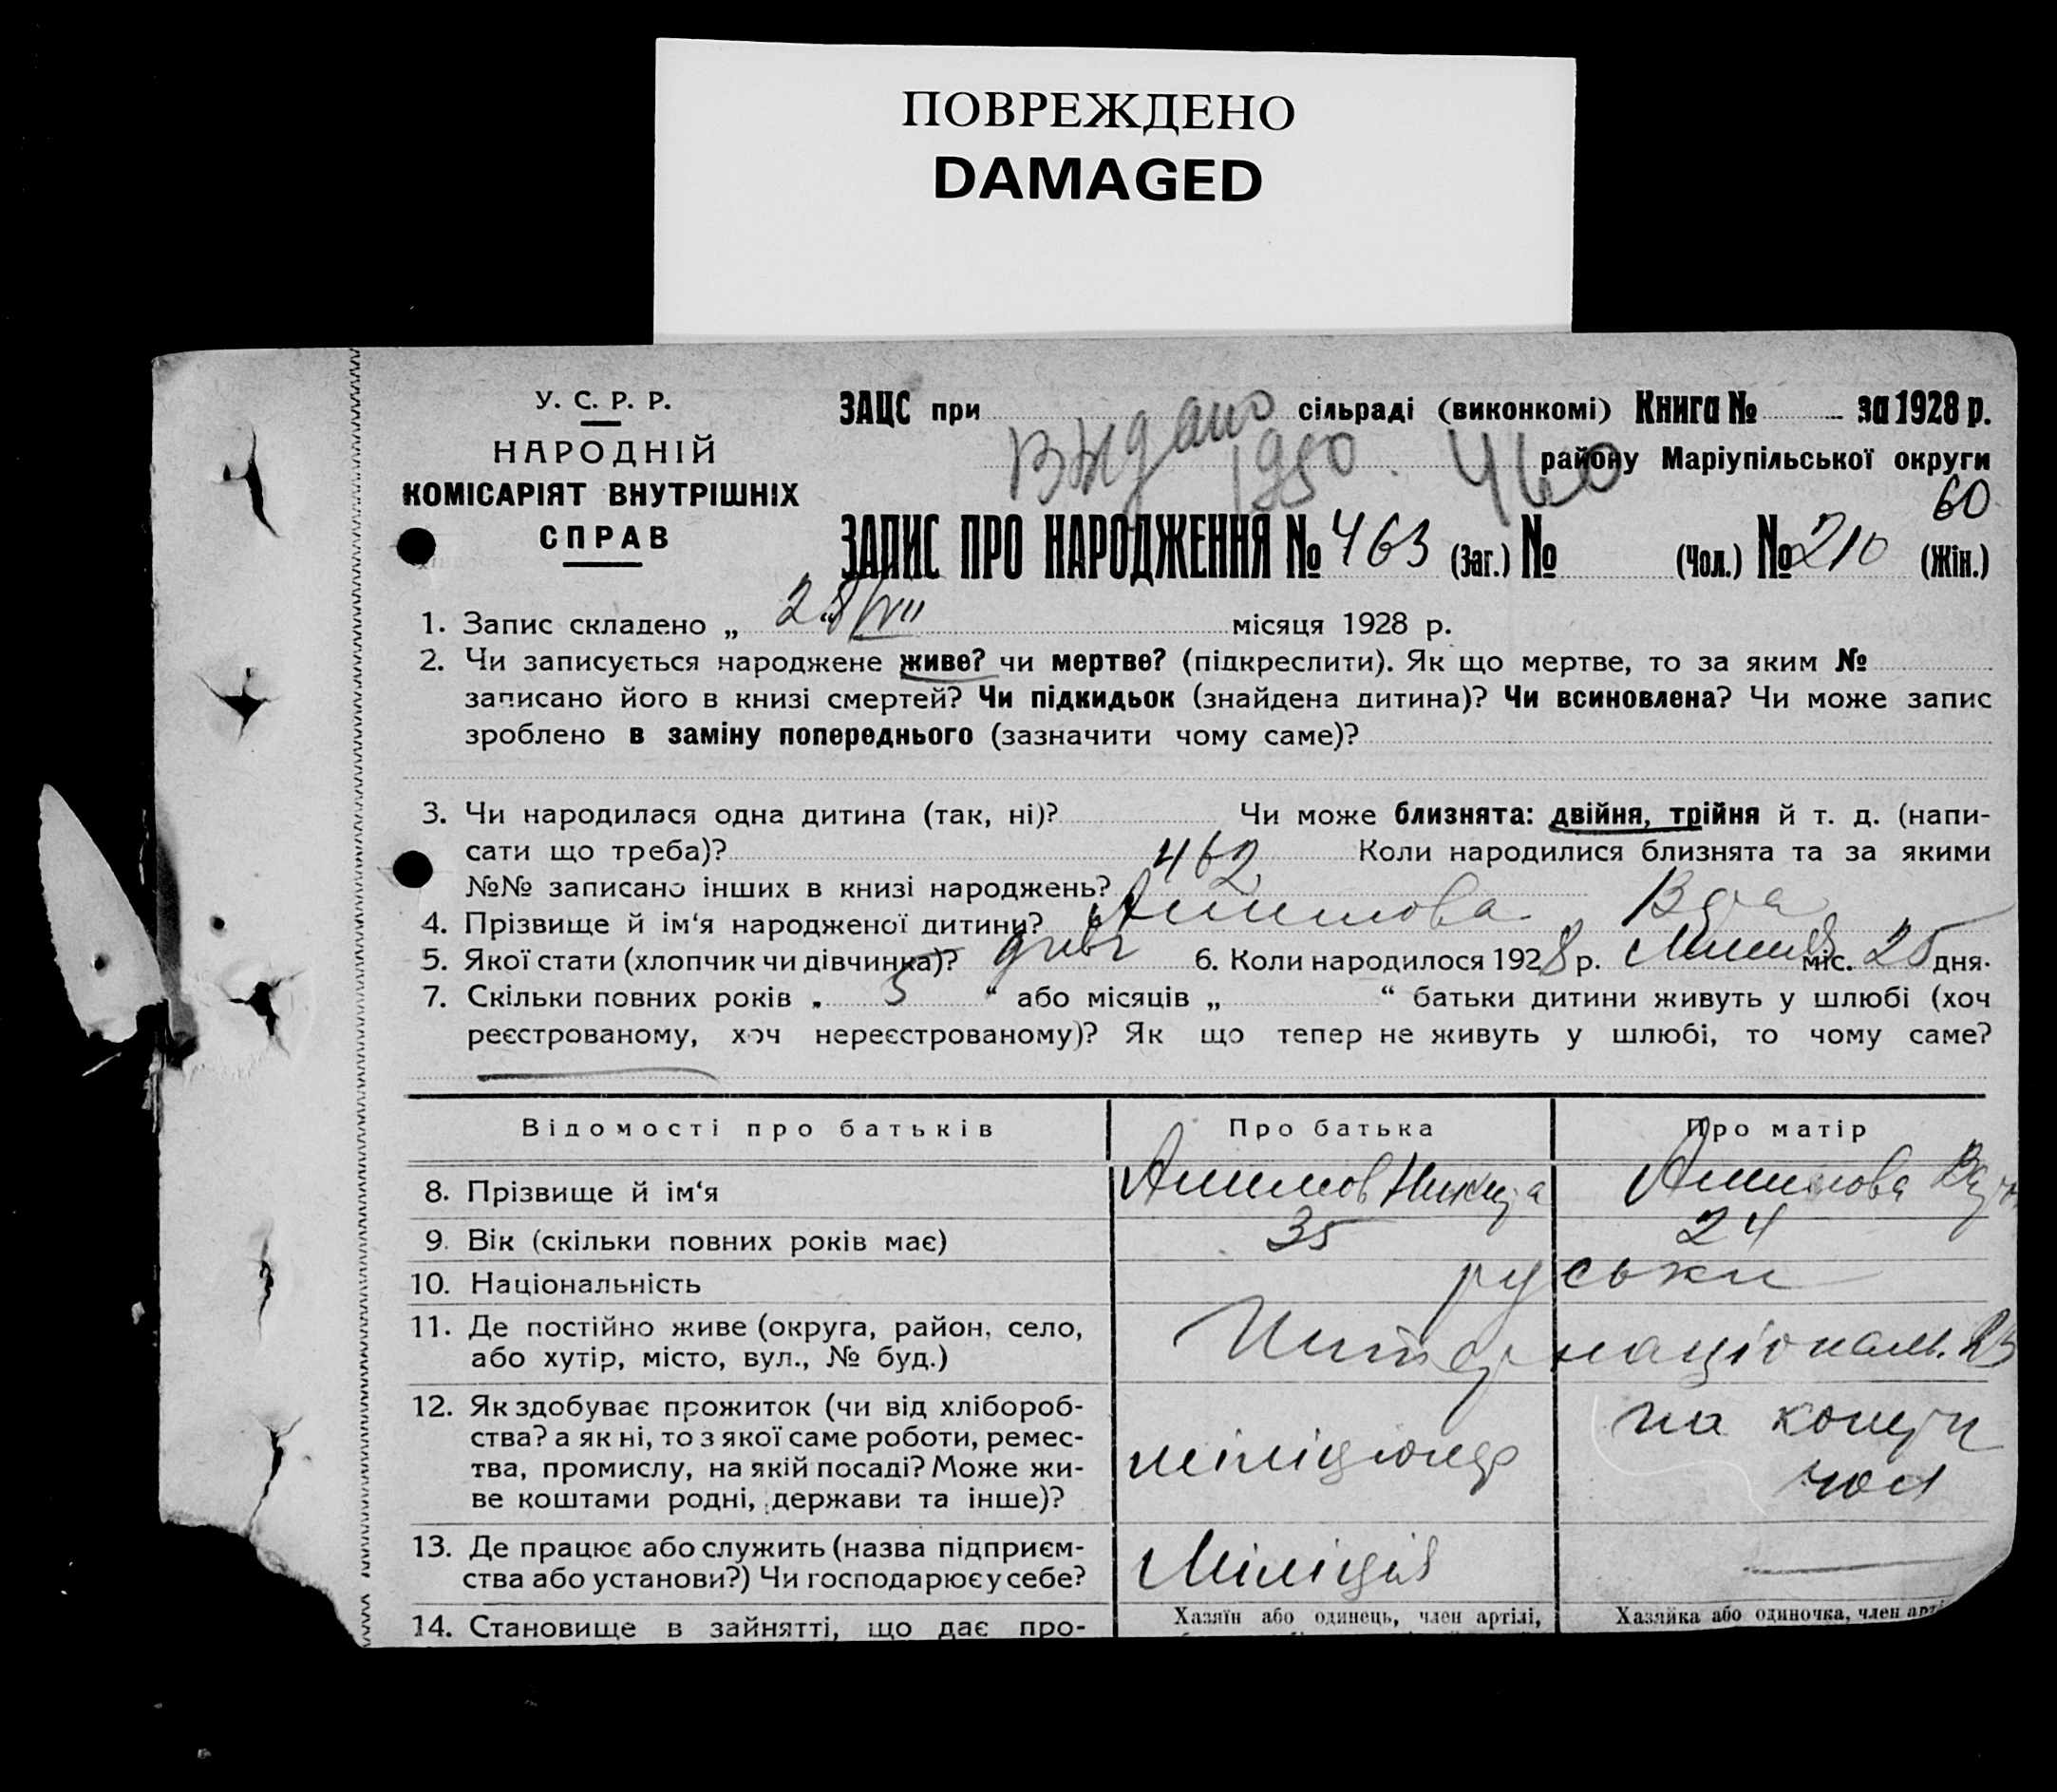 ПОВРЕЖДЕНО
DAMAGED
У. С. Р. Р.
НАРОДНІЙ
КОМІСАРІЯТ ВНУТРІШНІХ
СПРАВ
ЗАЦС при сільраді (виконкомі) Книга № за 1928 р.
Выдано
1950. 460 району Маріупільської округи
60
ЗАПИС ПРО НАРОДЖЕННЯ № 463 (Заг.) № (Чол.) № 210 (Жін.)
1. Запис складено „ 28/VII місяця 1928 р.
2. Чи записується народжене живе? чи мертве? (підкреслити). Як що мертве, то за яким №
записано його в книзі смертей? Чи підкидьок (знайдена дитина)? Чи всиновлена? Чи може запис
зроблено в заміну попереднього (зазначити чому саме)?
3. Чи народилася одна дитина (так, ні)? Чи може близнята: двійня, трійня й т. д. (напи-
сати що треба)? Коли народилися близнята та за якими
№№ записано інших в книзі народжень? 462
4. Прізвище й ім'я народженої дитини?
5. Якої стати (хлопчик чи дівчинка)? дівч 6. Коли народилося 1928 р. міс. 25 дня.
7. Скільки повних років „ 5 “ або місяців „ “ батьки дитини живуть у шлюбі (хоч
реєстрованому, хоч нереєстрованому)? Як що тепер не живуть у шлюбі, то чому саме?
Відомості про батьків Про батька Про матір
8. Прізвище й ім'я Никита
9. Вік (скільки повних років має) 35 24
10. Національність руськи
11. Де постійно живе (округа, район, село,
або хутір, місто, вул., № буд.) Интернаціональ. 23
12. Як здобуває прожиток (чи від хлібороб-
ства? а як ні, то з якої саме роботи, ремес-
тва, промислу, на якій посаді? Може жи-
ве коштами родні, держави та інше)? міліціонер на
13. Де працює або служить (назва підприєм-
ства або установи?) Чи господарює у себе? Міліція
14. Становище в зайнятті, що дає про- Хазяїн або одинець, член артілі, Хазяйка або одиночка, член арті